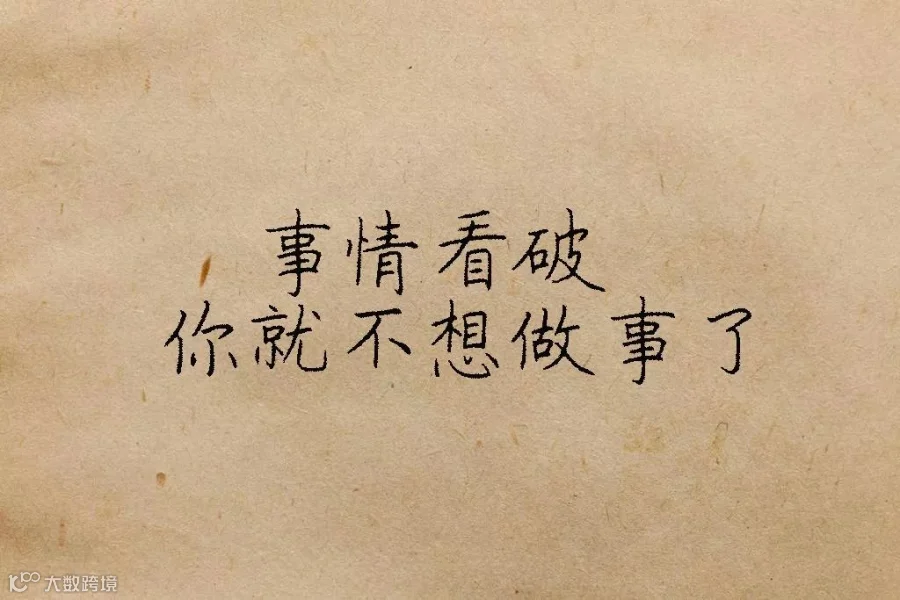 事情看破
你就不想做事了
大数跨境